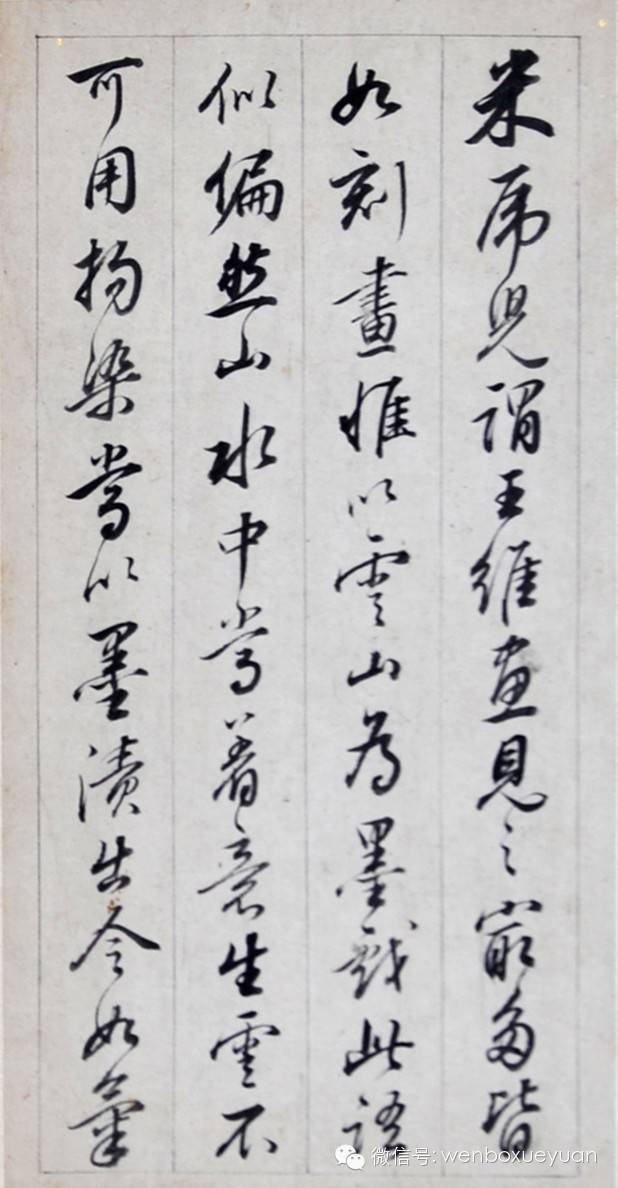 米虎兒謂王維畫見之最多皆
如刻畫惟以雲山為墨戲此語
似偏然山水中當著意生雲不
可用拘染當以墨漬出令如氣
微信号: wenboxueyuan